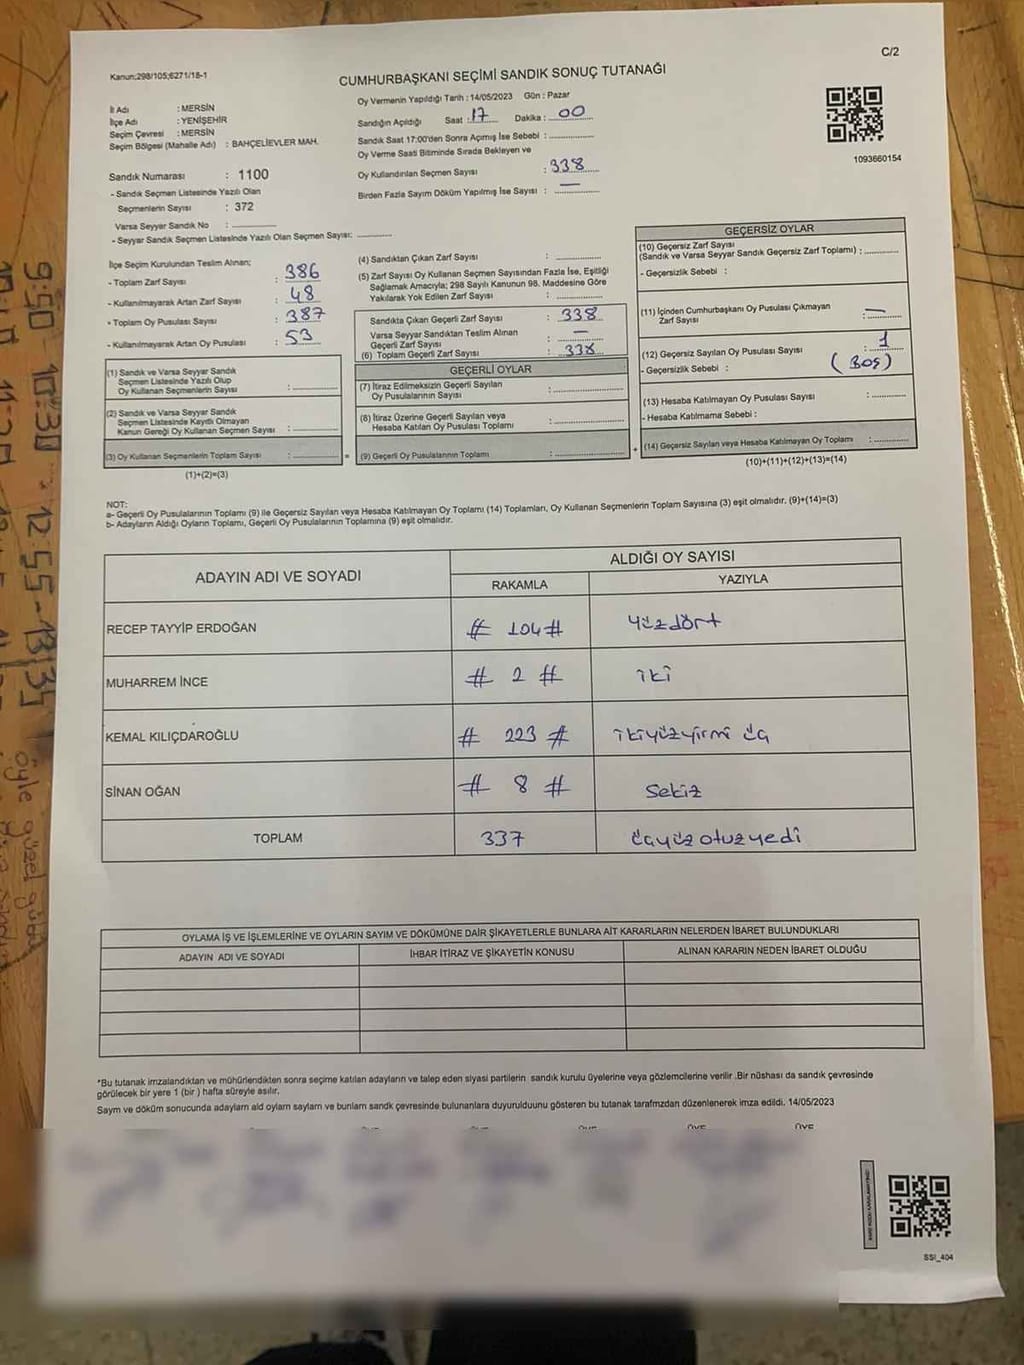 C/2
Kanun;298/105;6271/18-1
CUMHURBAŞKANI SEÇİMİ SANDIK SONUÇ TUTANAĞI
İl Adı : MERSİN
İlçe Adı : YENİŞEHİR
Seçim Çevresi : MERSİN
Seçim Bölgesi (Mahalle Adı) : BAHÇELİEVLER MAH.
Sandık Numarası : 1100
- Sandık Seçmen Listesinde Yazılı Olan
Seçmenlerin Sayısı : 372
Varsa Seyyar Sandık No :
- Seyyar Sandık Seçmen Listesinde Yazılı Olan Seçmen Sayısı:
Oy Vermenin Yapıldığı Tarih : 14/05/2023 Gün : Pazar
Sandığın Açıldığı Saat : 17 Dakika : 00
Sandık Saat 17:00'den Sonra Açımış İse Sebebi :
Oy Verme Saati Bitiminde Sırada Bekleyen ve
Oy Kullandırılan Seçmen Sayısı : 338
Birden Fazla Sayım Döküm Yapılmış İse Sayısı : —
1093660154
İlçe Seçim Kurulundan Teslim Alınan;
- Toplam Zarf Sayısı : 386
- Kullanılmayarak Artan Zarf Sayısı : 48
- Toplam Oy Pusulası Sayısı : 387
- Kullanılmayarak Artan Oy Pusulası : 53
(1) Sandık ve Varsa Seyyar Sandık
Seçmen Listesinde Yazılı Olup
Oy Kullanan Seçmenlerin Sayısı :
(2) Sandık ve Varsa Seyyar Sandık
Seçmen Listesinde Kayıtlı Olmayan
Kanun Gereği Oy Kullanan Seçmen Sayısı :
(3) Oy Kullanan Seçmenlerin Toplam Sayısı :
(1)+(2)=(3)
(4) Sandıktan Çıkan Zarf Sayısı :
(5) Zarf Sayısı Oy Kullanan Seçmen Sayısından Fazla İse, Eşitliği
Sağlamak Amacıyla; 298 Sayılı Kanunun 98. Maddesine Göre
Yakılarak Yok Edilen Zarf Sayısı :
Sandıkta Çıkan Geçerli Zarf Sayısı : 338
Varsa Seyyar Sandıktan Teslim Alınan
Geçerli Zarf Sayısı : —
(6) Toplam Geçerli Zarf Sayısı : 338
GEÇERLİ OYLAR
(7) İtiraz Edilmeksizin Geçerli Sayılan
Oy Pusulalarının Sayısı :
(8) İtiraz Üzerine Geçerli Sayılan veya
Hesaba Katılan Oy Pusulası Toplamı :
(9) Geçerli Oy Pusulalarının Toplamı :
GEÇERSİZ OYLAR
(10) Geçersiz Zarf Sayısı
(Sandık ve Varsa Seyyar Sandık Geçersiz Zarf Toplamı) :
- Geçersizlik Sebebi :
(11) İçinden Cumhurbaşkanı Oy Pusulası Çıkmayan
Zarf Sayısı : —
(12) Geçersiz Sayılan Oy Pusulası Sayısı : 1
- Geçersizlik Sebebi : (Boş)
(13) Hesaba Katılmayan Oy Pusulası Sayısı :
- Hesaba Katılmama Sebebi :
(14) Geçersiz Sayılan veya Hesaba Katılmayan Oy Toplamı :
(10)+(11)+(12)+(13)=(14)
NOT:
a- Geçerli Oy Pusulalarının Toplamı (9) ile Geçersiz Sayılan veya Hesaba Katılmayan Oy Toplamı (14) Toplamları, Oy Kullanan Seçmenlerin Toplam Sayısına (3) eşit olmalıdır. (9)+(14)=(3)
b- Adayların Aldığı Oyların Toplamı, Geçerli Oy Pusulalarının Toplamına (9) eşit olmalıdır.
ADAYIN ADI VE SOYADI
ALDIĞI OY SAYISI
RAKAMLA YAZIYLA
RECEP TAYYİP ERDOĞAN # 104 # yüzdört
MUHARREM İNCE # 2 # iki
KEMAL KILIÇDAROĞLU # 223 # ikiyüzyirmi üç
SİNAN OĞAN # 8 # Sekiz
TOPLAM 337 üçyüz otuzyedi
OYLAMA İŞ VE İŞLEMLERİNE VE OYLARIN SAYIM VE DÖKÜMÜNE DAİR ŞİKAYETLERLE BUNLARA AİT KARARLARIN NELERDEN İBARET BULUNDUKLARI
ADAYIN ADI VE SOYADI İHBAR İTİRAZ VE ŞİKAYETİN KONUSU ALINAN KARARIN NEDEN İBARET OLDUĞU
*Bu tutanak imzalandıktan ve mühürlendikten sonra seçime katılan adayların ve talep eden siyasi partilerin sandık kurulu üyelerine veya gözlemcilerine verilir .Bir nüshası da sandık çevresinde
görülecek bir yere 1 (bir ) hafta süreyle asılır.
Sayım ve döküm sonucunda adayların ald oyların sayların ve bunların sandk çevresinde bulunanlara duyurulduunu gösteren bu tutanak tarafmzdan düzenlenerek imza edildi. 14/05/2023
ÜYE ÜYE ÜYE ÜYE ÜYE
SSI_404
9:50 10:30 - 12:55-13:35
öyle güzel